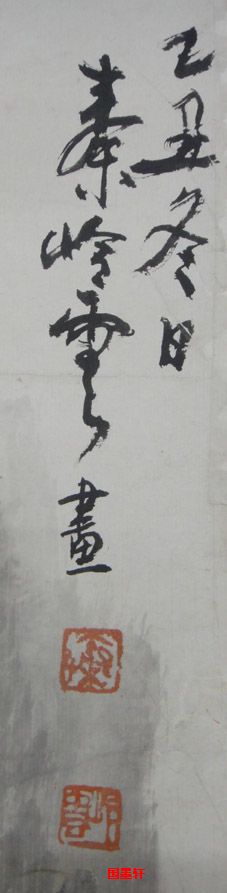 乙丑冬日
秦岭雲画
国墨轩